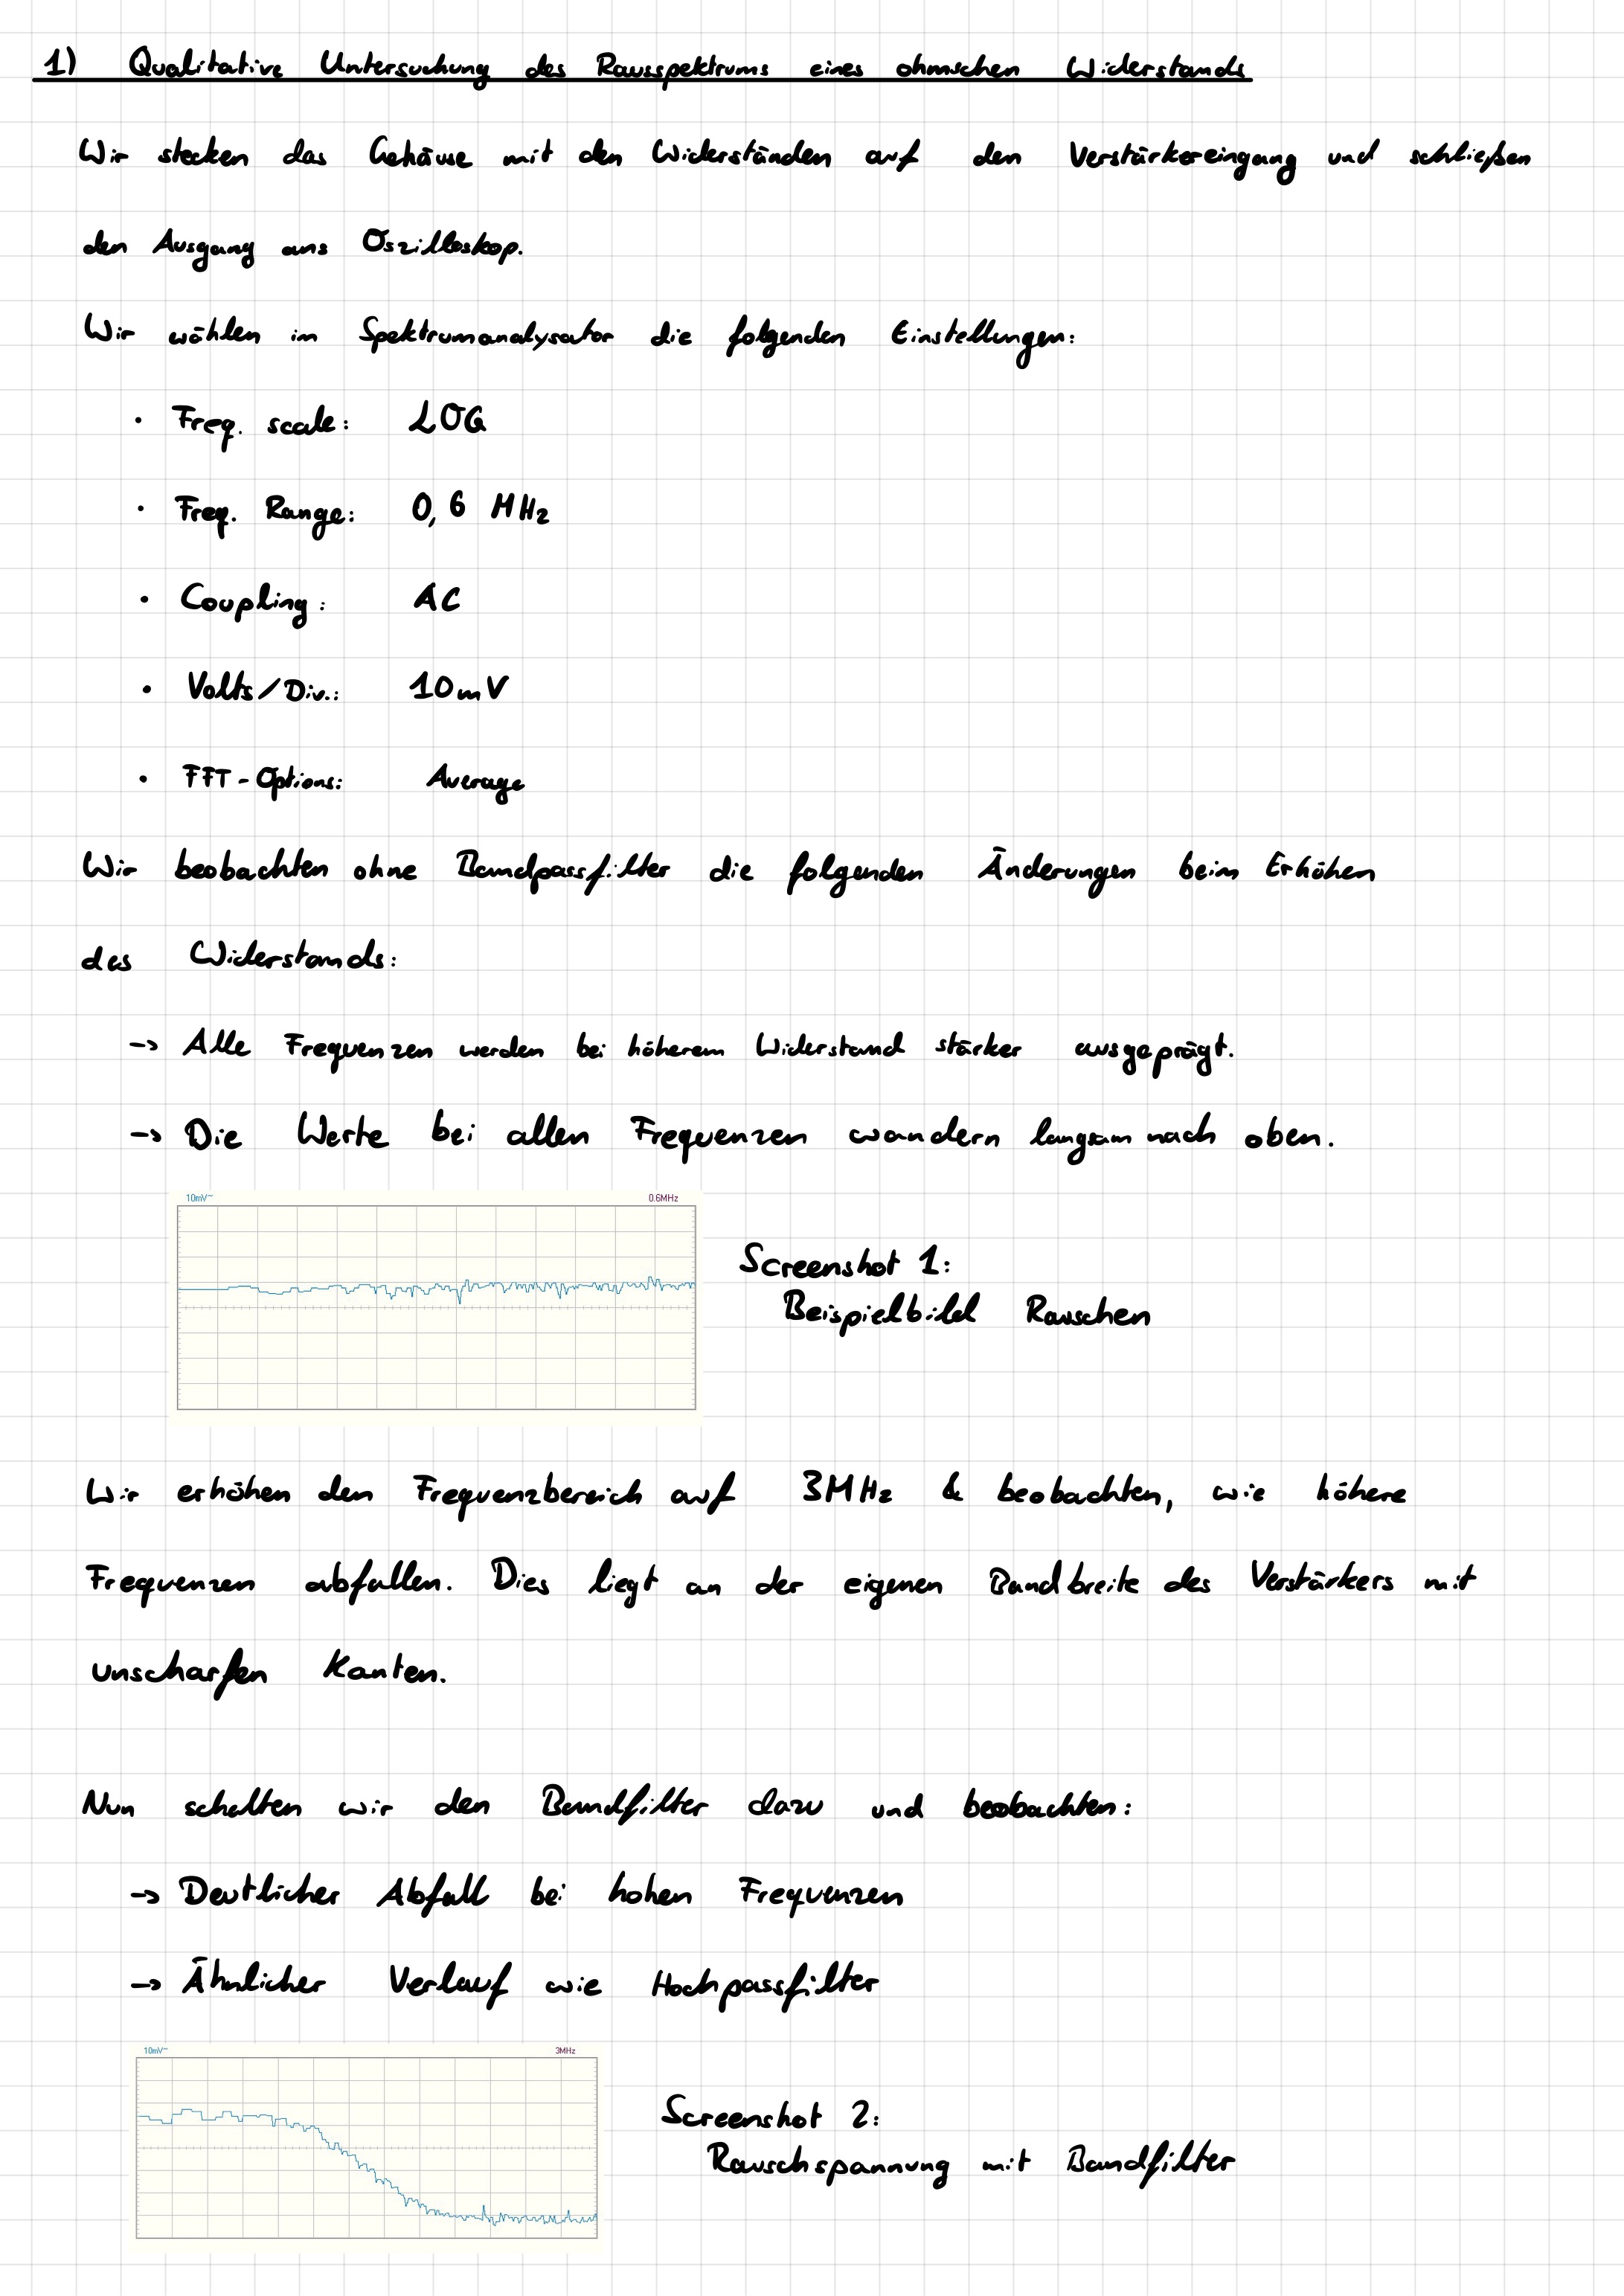 1) Qualitative Untersuchung des Rausspektrums eines ohmschen Widerstands
Wir stecken das Gehäuse mit den Widerständen auf den Verstärkereingang und schließen
den Ausgang ans Oszilloskop.
Wir wählen im Spektrumanalysator die folgenden Einstellungen:
• Freq. scale: LOG
• Freq. Range: 0,6 MHz
• Coupling: AC
• Volts/Div.: 10mV
• FFT-Options: Average
Wir beobachten ohne Bandpassfilter die folgenden Änderungen beim Erhöhen
des Widerstands:
-> Alle Frequenzen werden bei höherem Widerstand stärker ausgeprägt.
-> Die Werte bei allen Frequenzen wandern langsam nach oben.
10mV~ 0.6MHz
Screenshot 1:
Beispielbild Rauschen
Wir erhöhen den Frequenzbereich auf 3MHz & beobachten, wie höhere
Frequenzen abfallen. Dies liegt an der eigenen Bandbreite des Verstärkers mit
unscharfen Kanten.
Nun schalten wir den Bandfilter dazu und beobachten:
-> Deutlicher Abfall bei hohen Frequenzen
-> Ähnlicher Verlauf wie Hochpassfilter
10mV~ 3MHz
Screenshot 2:
Rauschspannung mit Bandfilter